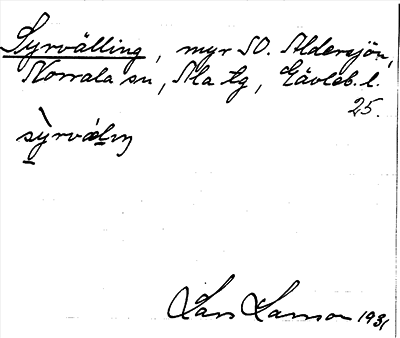 Syrvälling, myr SO. Aldersjön,
Norrala sn, Ala tg, Gävleb. l.
25.
sy̠rvälıŋ
Lars Larsson 1931